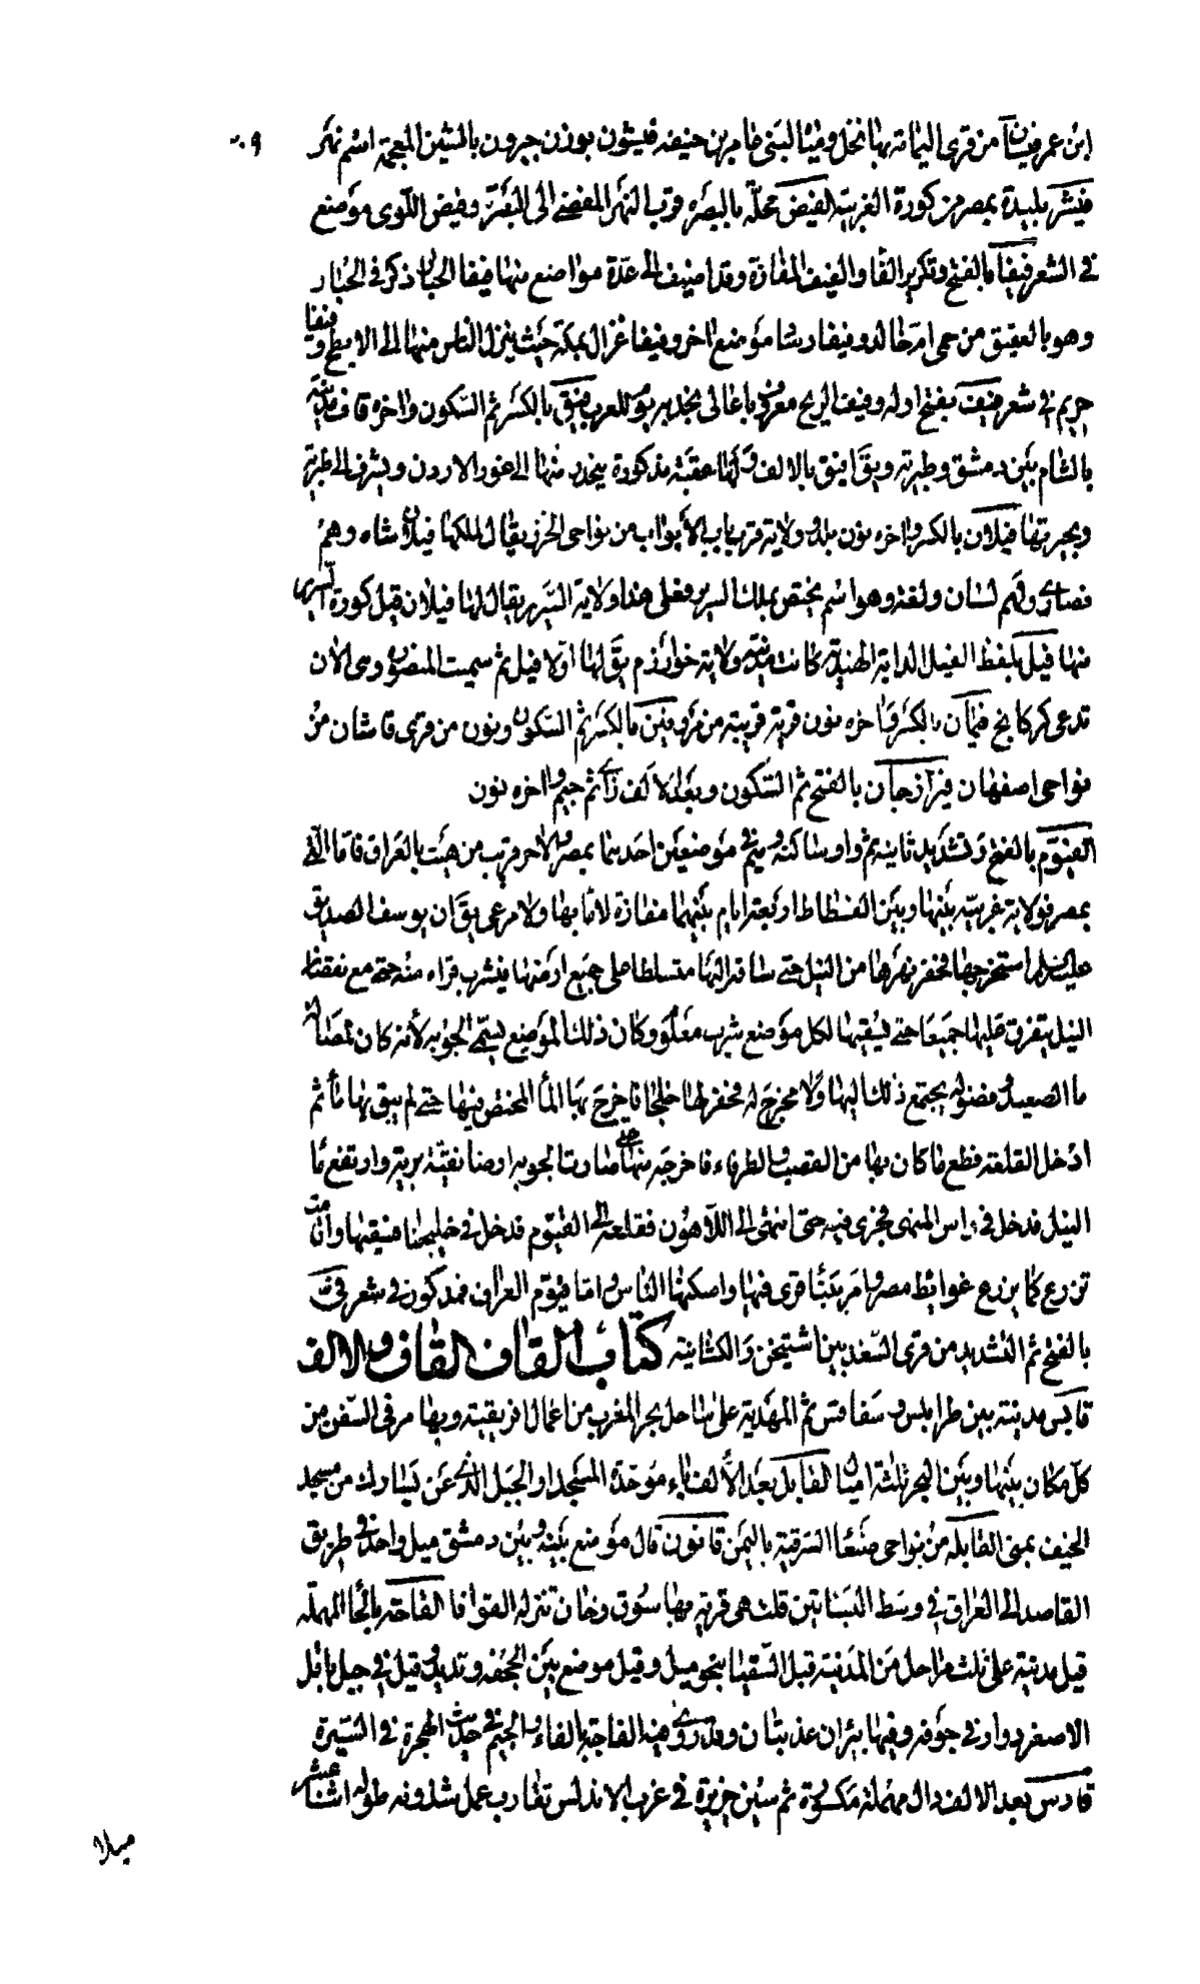 ابن عمر فيشان من قرى اليمامة بها نخل ومياه لبنى عامر بن حنيفه فيشون بوزن جيرون بالشين المعجمة اسم نهر
فيشر بليدة بمصر من كورة الغربيه الفيض محلّة بالبصره قرب النهر المفضى الى البصرة وفيض اللّوى موضع
فى الشعر فيفا بالفتح وتكرير الفا والفيف المفازة وقد اضيف الى عدّة مواضع منها فيفا الخبار ذكر فى الخبار
وهو بالعقيق من حمى ام خالد وفيفا رشا موضع اخر وفيفا غزال بمكة حيث ينزل الناس منها الى الابطح وفيفا
خريم فى شعر فيف بفتح اوله وفيف الريح معروف باعالى نجد به يوم للعرب فيق بالكسر ثم السكون واخره قاف مدينة
بالشام بين دمشق وطبريه ويق افيق بالالف ولها عقبة مذكورة ينحدر منها الى غور الاردن ويشرف الى طبرية
وبحيرتها فيلان بالكسر واخره نون بلد وولاية قرب باب الأبواب من نواحى الخزر يقال لملكها فيلان شاه وهم
نصارى ولهم لسان ولغة وهو اسم يختص بملك السرير فعلى هذا ولاية السرير يقال لها فيلان قيل كورة السرير
منها فيل بلفظ الفيل الدابة الهندية كانت مدينة ولاية خوارزم يق لها اولا فيل ثم سميت المنصوره وهى الآن
تدعى كركانج فيمان بالكسر واخره نون قرية قريبة من مرو فين بالكسر ثم السكون ونون من قرى قاشان من
نواحى اصفهان فيرازجان بالفتح ثم السكون وبعد الالف زاى ثم جيم واخره نون
الفيوم بالفتح وتشديد ثانيه ثم واو ساكنه وميم فى موضعين احدهما بمصر والاخر قريب من هيت بالعراق فاما التى
بمصر فولاية غربيه بينها وبين الفسطاط اربعة ايام بينهما مفازة لا ماء بها ولا مرعى يق ان يوسف الصديق
عليه السلام استخرجها فحفر نهرها من النيل حتى ساقه اليها متسلطا على جميع ارضها فيشرب قراه منه حتى مع نقصان
النيل يتفرق عليها جميعا حتى يسقيها لكل موضع شرب معلوم وكان ذلك الموضع يسمّى الجوبه لأنه كان لمصالة
ما الصعيد وفضوله يجتمع ذلك اليها ولا مخرج له فحفر لها خلجانا فاخرج بها الماء المحتقن فيها حتى لم يبق بها ماء ثم
ادخل القلعة فقطع ما كان بها من القصب والطرفاء فاخرجه منها حتى صارت الجوبه ارضا نقيّة بريّة وارتفع ما
النيل فدخل فى راس المنهى فجرى فيه حتى انتهى الى اللاهون فقلعه الى الفيوم فدخل فى خليجها فسقيها وامرت
تزرع كما يزرع غوائط مصر وامر ببناء قرى فيها واسكنها الناس واما فيوم العراق فمذكور فى شعر فى
بالفتح ثم التشديد من قرى السغد بين اشتيخن والكشانية كتاب القاف القاف والالف
قابس مدينة بين طرابلس وسفاقس ثم المهدية على ساحل بحر المغرب من اعمال افريقية وبها مرفى السفن من
كل مكان بينها وبين البحر ثلثة اميال القابل بعد الألف باء موحدة المسجد او الجبل الذى عن يسارك من مسجد
الخيف بمنى القابله من نواحى صنعاء الشرقية باليمن قابون قال موضع بينه وبين دمشق ميل واحد فى طريق
القاصد الى العراق فى وسط البساتين قلت هى قرية بها سوق وخان تنزله القوافا القاحة بالحا المهملة
قيل مدينة على ثلث مراحل من المدينة قبل السقيا بنحو ميل وقيل موضع بين الجحفه وقديد وقيل فى جبل ثافل
الاصغر دوار فى جوفه وفيها بئران عذبتان وقد روى فيه الفاجة بالفاء والجيم فى حديث الهجرة فى السيرة
قادس بعد الالف دال مهملة مكسورة ثم سين جزيرة فى غرب الاندلس تقارب عمل شذونه طوله اثنا عشر
ميلا